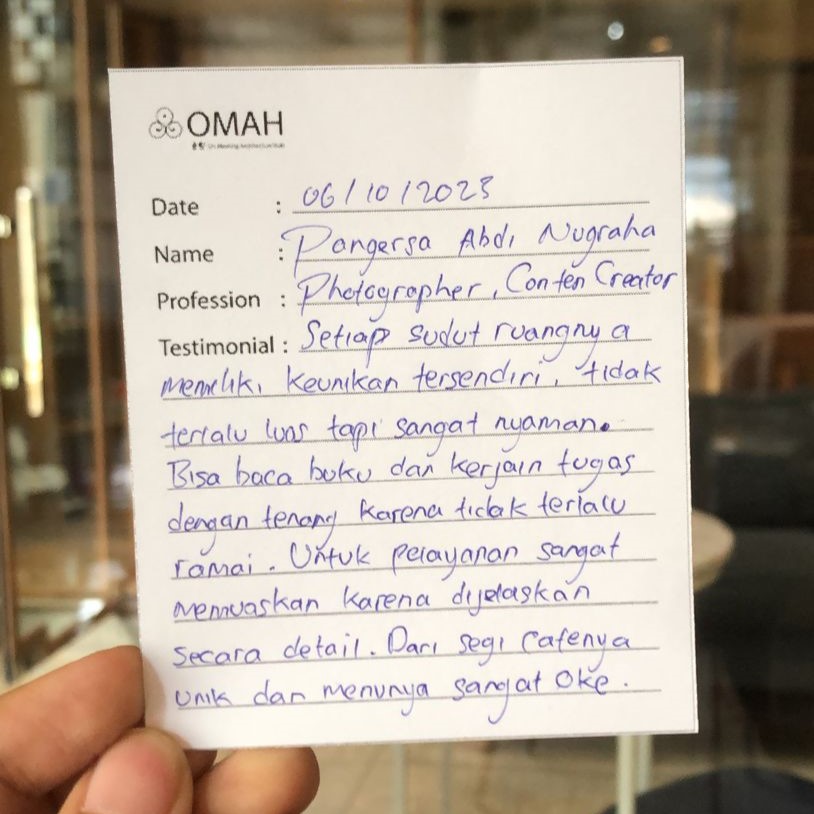 OMAH
Date : 06/10/2023
Name : Pangersa Abdi Nugraha
Profession : Photographer, Conten Creator
Testimonial : Setiap sudut ruangnya
memeliki keunikan tersendiri, tidak
terlalu luas tapi sangat nyaman.
Bisa baca buku dan kerjain tugas
dengan tenang karena tidak terlalu
ramai. Untuk pelayanan sangat
memuaskan karena dijelaskan
secara detail. Dari segi cafenya
unik dan menunya sangat oke.